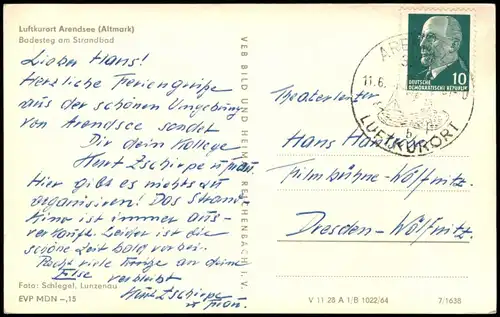 Luftkurort Arendsee (Altmark)
Badesteg am Strandbad
Lieber Hans!
Herzliche Feriengrüße
aus der schönen Umgebung
von Arendsee sendet
Dir dein Kollege
Kurt Zschirpe u Frau.
Hier gibt es nichts zu
organisieren! Das Strand
Kino ist immer aus-
verkauft. Leider ist die
schöne Zeit bald vorbei.
Recht viele Grüße an deine
Ilse verbleibt
Kurt Zschirpe
u Frau.
Foto: Schlegel, Lunzenau
EVP MDN –,15
VEB BILD UND HEIMAT REICHENBACH I. V.
DEUTSCHE
DEMOKRATISCHE REPUBLIK
10
11.6.
LUFTKURORT
Theaterleiter
Hans
Filmbühne-Wölfnitz
Dresden-Wölfnitz.
V 11 28 A 1/B 1022/64
7/1638